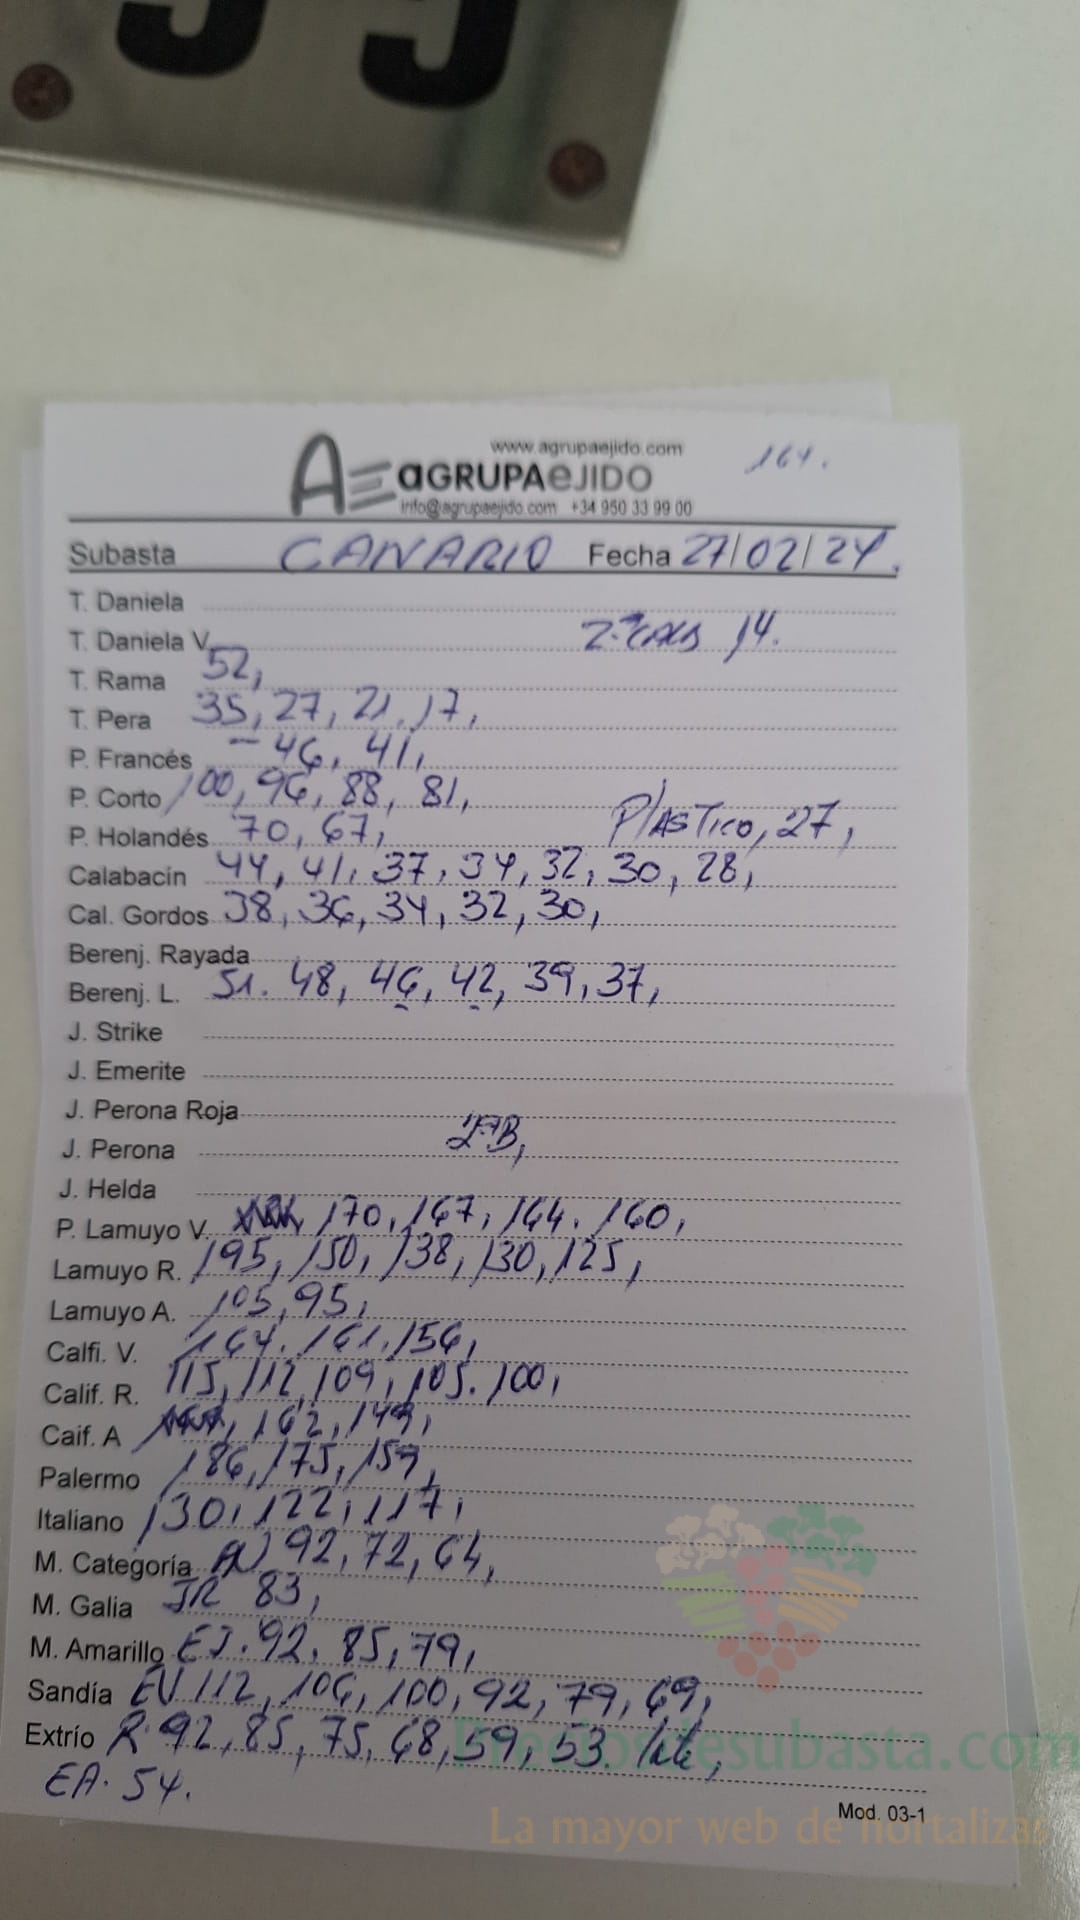 www.agrupaejido.com
164.
AE aGRUPAeJIDO
info@agrupaejido.com +34 950 33 99 00
Subasta CANARIO Fecha 27/02/24.
T. Daniela
T. Daniela V. 14.
T. Rama 52,
T. Pera 35, 27, 21, 17,
P. Francés - 46, 41,
P. Corto 100, 96, 88, 81,
P. Holandés 70, 67, PlASTico, 27,
Calabacín 44, 41, 37, 34, 32, 30, 28,
Cal. Gordos 38, 36, 34, 32, 30,
Berenj. Rayada
Berenj. L. 51. 48, 46, 42, 39, 37,
J. Strike
J. Emerite
J. Perona Roja
J. Perona
J. Helda
P. Lamuyo V. 170, 167, 164. 160,
Lamuyo R. 195, 150, 138, 130, 125,
Lamuyo A. 105, 95,
Calfi. V. 164. 161. 156,
Calif. R. 115, 112, 109, 105. 100,
Caif. A 162, 149,
Palermo 186, 175, 159,
Italiano 130, 122, 117,
M. Categoría 92, 72, 64,
M. Galia JR 83,
M. Amarillo EJ. 92, 85, 79,
Sandía EV 112, 106, 100, 92, 79, 69,
Extrío R. 92, 85, 75, 68, 59, 53.
EA. 54.
Preciosdesubasta.com
Mod. 03-1
La mayor web de hortalizas